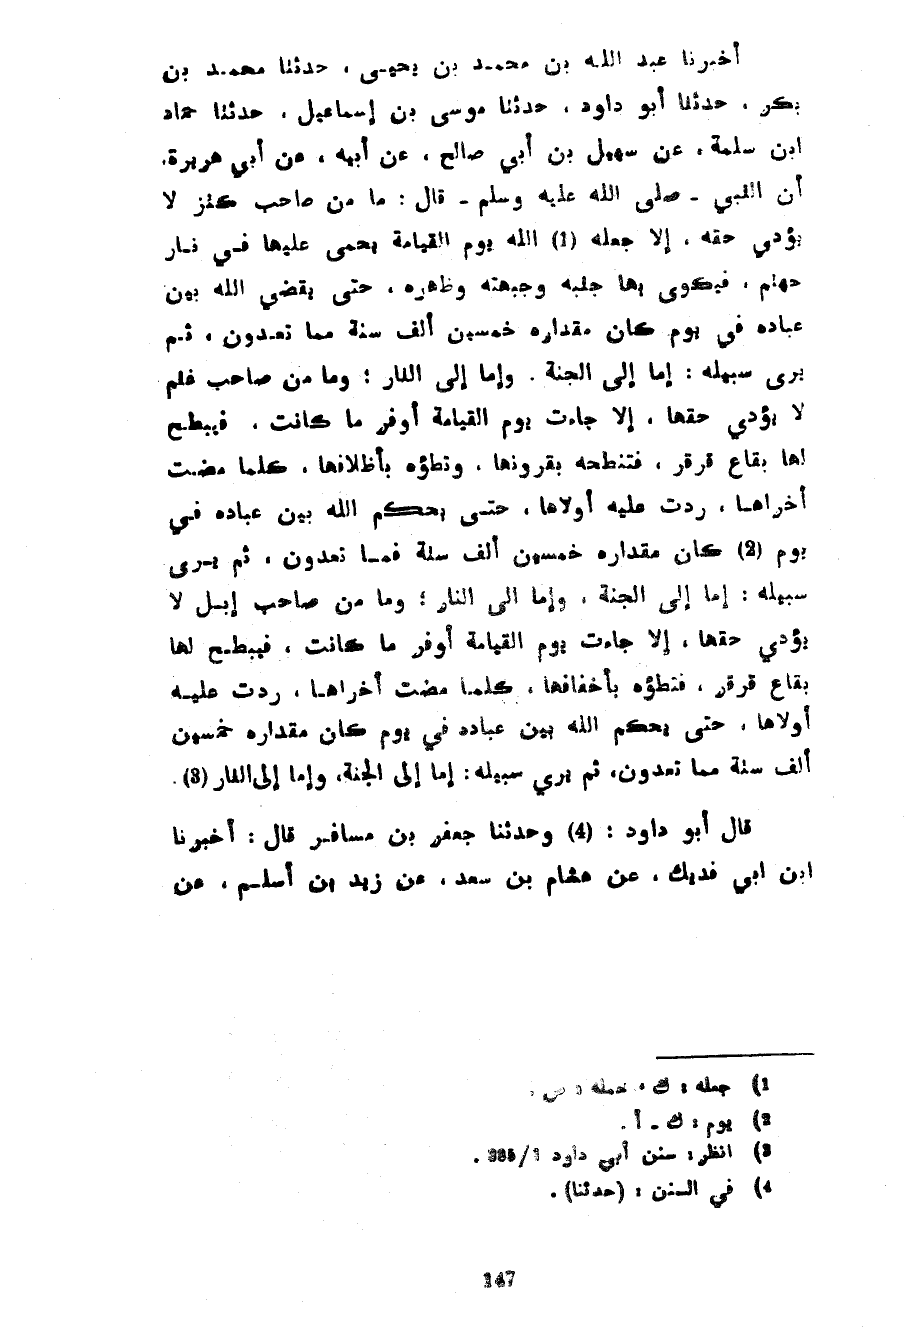 أخبرنا عبد الله بن محمد بن يحيى ، حدثنا محمد بن
بكر ، حدثنا أبو داود ، حدثنا موسى بن إسماعيل ، حدثنا حماد
ابن سلمة ، عن سهيل بن أبي صالح ، عن أبيه ، عن أبي هريرة،
أن النبي - صلى الله عليه وسلم - قال : ما من صاحب كنز لا
يؤدي حقه ، إلا جعله (1) الله يوم القيامة يحمى عليها في نار
جهنم ، فيكوى بها جنبه وجبهته وظهره ، حتى يقضي الله بين
عباده في يوم كان مقداره خمسين ألف سنة مما تعدون ، ثم
يرى سبيله : إما إلى الجنة . وإما إلى النار ؛ وما من صاحب غنم
لا يؤدي حقها ، إلا جاءت يوم القيامة أوفر ما كانت ، فيبطح
لها بقاع قرقر ، فتنطحه بقرونها ، وتطؤه بأظلافها ، كلما مضت
أخراها ، ردت عليه أولاها ، حتى يحكم الله بين عباده في
يوم (2) كان مقداره خمسين ألف سنة فما تعدون ، ثم يرى
سبيله : إما إلى الجنة ، وإما الى النار ؛ وما من صاحب إبل لا
يؤدي حقها ، إلا جاءت يوم القيامة أوفر ما كانت ، فيبطح لها
بقاع قرقر ، فتطؤه بأخفافها ، كلما مضت أخراها ، ردت عليه
أولاها ، حتى يحكم الله بين عباده في يوم كان مقداره خمسين
ألف سنة مما تعدون، ثم يري سبيله : إما إلى الجنة، وإما إلى النار (3) .
قال أبو داود : (4) وحدثنا جعفر بن مسافر قال : أخبرنا
ابن ابي فديك ، عن هشام بن سعد ، عن زيد بن أسلم ، عن
1) جعله : ك ، حمله : ص .
2) يوم : ك - أ .
3) انظر : سنن أبي داود 1/385 .
4) في السنن : (حدثنا) .
147